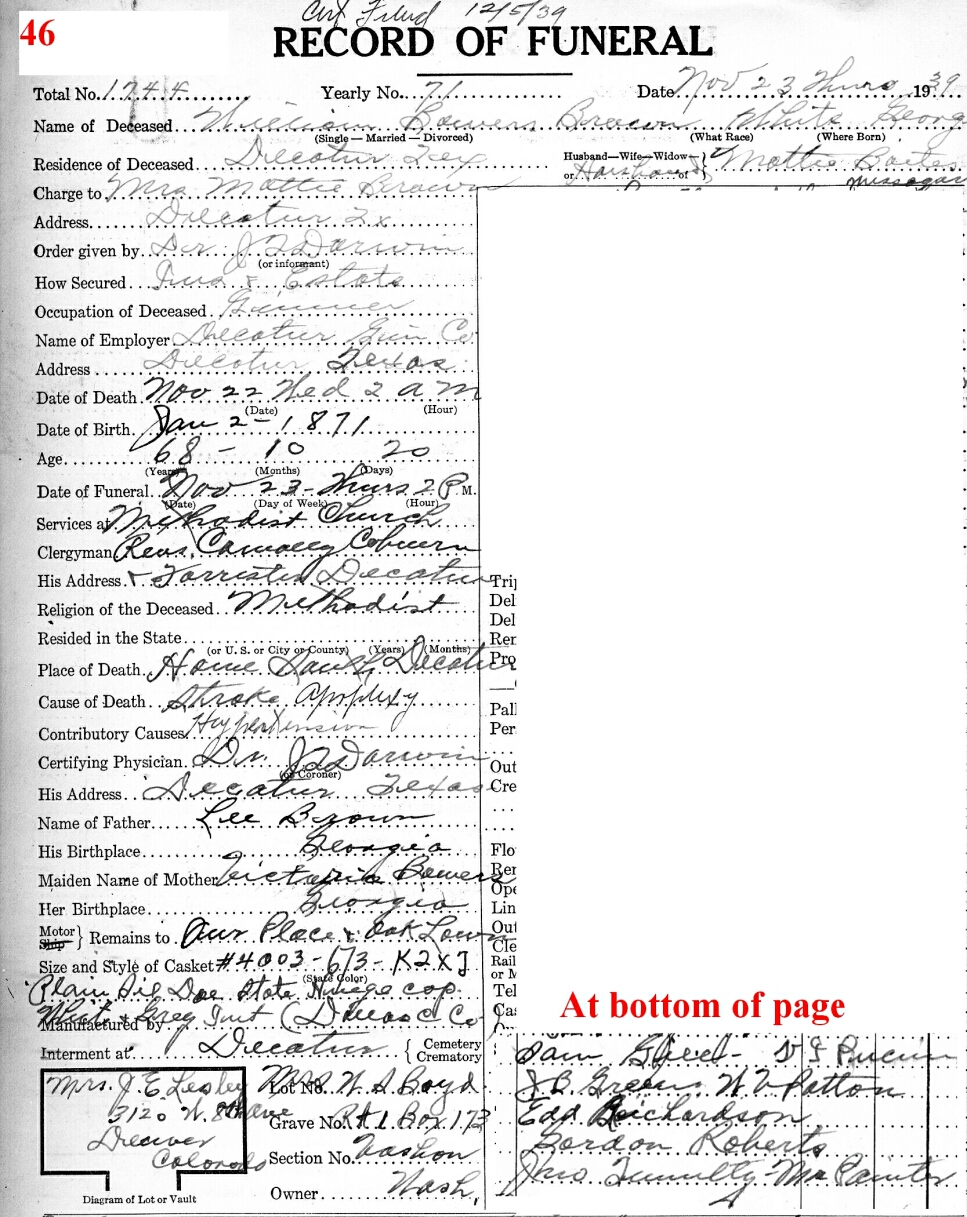 46
Cert Filed 12/5/39
RECORD OF FUNERAL
Total No. 1744 Yearly No. 71 Date Nov 23 Thurs 1939
Name of Deceased William Bowers Brown White Georg
(Single — Married — Divorced) (What Race) (Where Born)
Residence of Deceased Decatur Tex Husband—Wife—Widow or Husband of Mattie
Charge to Mrs Mattie Brown
Address Decatur Tx
Order given by Dr. Darwin
(or informant)
How Secured Ins & Estate
Occupation of Deceased Ginner
Name of Employer Decatur Gin Co
Address Decatur Texas
Date of Death Nov 22 Wed 2 a m
(Date) (Hour)
Date of Birth Jan 2 - 1871
Age 68 - 10 20
(Years) (Months) (Days)
Date of Funeral Nov 23 - Thurs 2 P M.
(Date) (Day of Week) (Hour)
Services at Methodist Church
Clergyman Revs. Coburn
His Address & Decatur
Religion of the Deceased Methodist
Resided in the State
(or U. S. or City or County) (Years) (Months)
Place of Death Home Decatur
Cause of Death Stroke Apoplexy
Contributory Causes Hypertension
Certifying Physician Dr. Darwin
(or Coroner)
His Address Decatur Texas
Name of Father Lee Brown
His Birthplace Georgia
Maiden Name of Mother Victoria Bowers
Her Birthplace Georgia
Motor Ship } Remains to Our Place & Oak Lawn
Size and Style of Casket #4003 - 6/3 - K2XJ
(State Color)
Plain Sil Doe State cop
Manufactured by Grey Int
Interment at Decatur { Cemetery Crematory
Mrs. J. E. Lesley
3120 W. 8th Ave
Denver
Colorado
Diagram of Lot or Vault
Lot No. Mrs W. S. Boyd
Grave No. Rt 1 Box 173
Section No. Vashon
Owner Wash,
Trip
Del
Del
Rem
Pro
Pall
Per
Out
Cre
Flo
Ren
Ope
Lin
Out
Cle
Rail
or M
Tel
Cas
At bottom of page
Sam
J. B. Green W. V. Patton
Edd Richardson
Gordon Roberts
Jno Tumulty Mr Painter